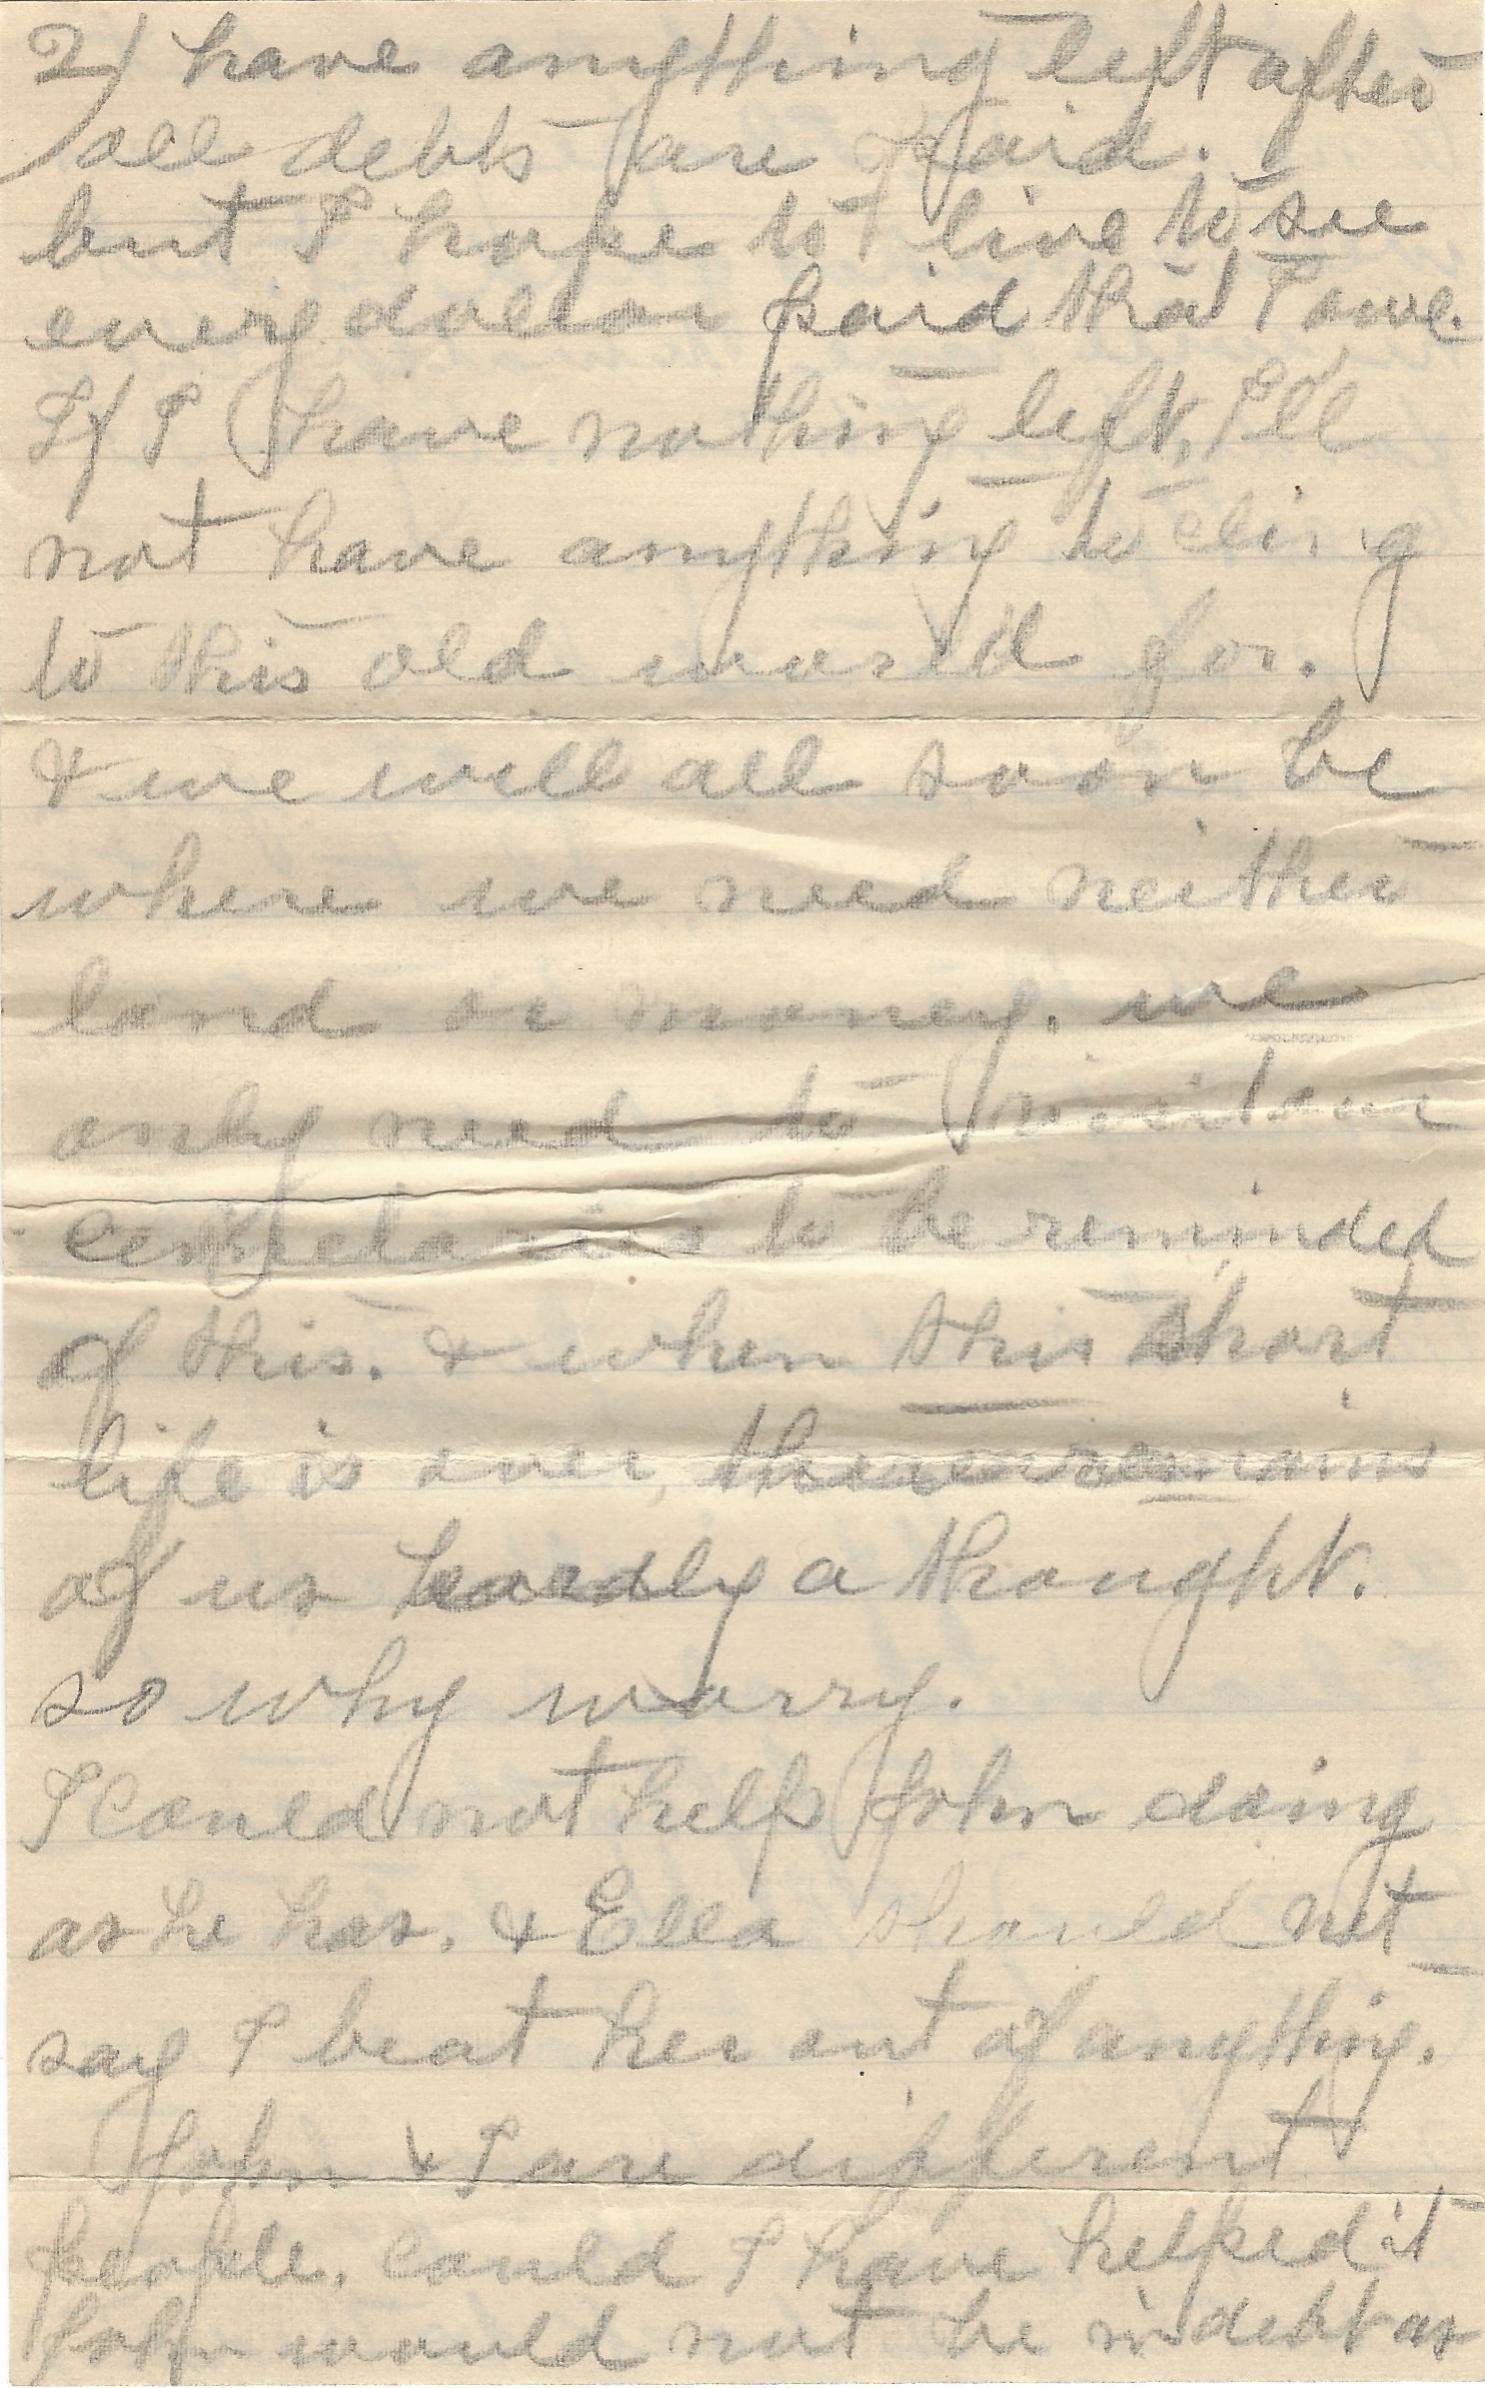 2) have anything left after
all debts are paid.
but I hope to live to see
every dollar paid that I owe.
If I have nothing left, I'll
not have anything to cling
to this old world for.
& we will all soon be
where we need neither
land or money. we
only need to visit our
to be reminded
of this. & when this short
life is over, there remains
of us hardly a thought.
so why worry.
I could not help John doing
as he has. & Ella should not
say I beat her out of anything.
John & I are different
people. Could I have helped it
John would not be in debt as